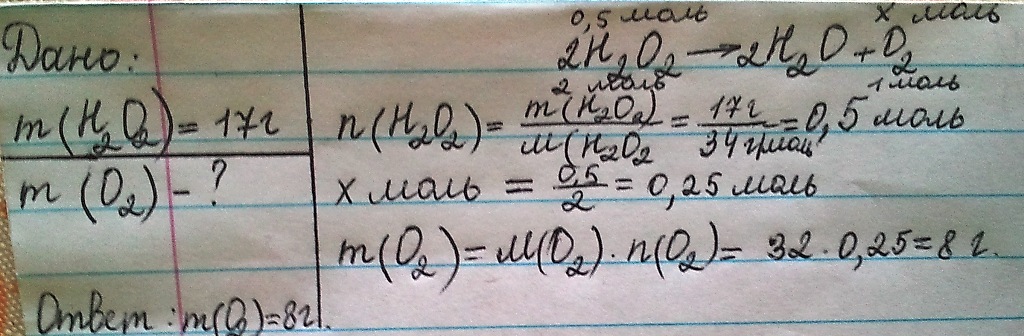 Дано:
m(H₂O₂) = 17г
m(O₂) - ?
0,5 моль x моль
2H₂O₂ → 2H₂O + O₂
2 моль 1 моль
n(H₂O₂) = m(H₂O₂)/M(H₂O₂ = 17г/34г/моль = 0,5 моль
x моль = 0,5/2 = 0,25 моль
m(O₂) = M(O₂) · n(O₂) = 32 · 0,25 = 8 г.
Ответ: m(O₂)=8г.